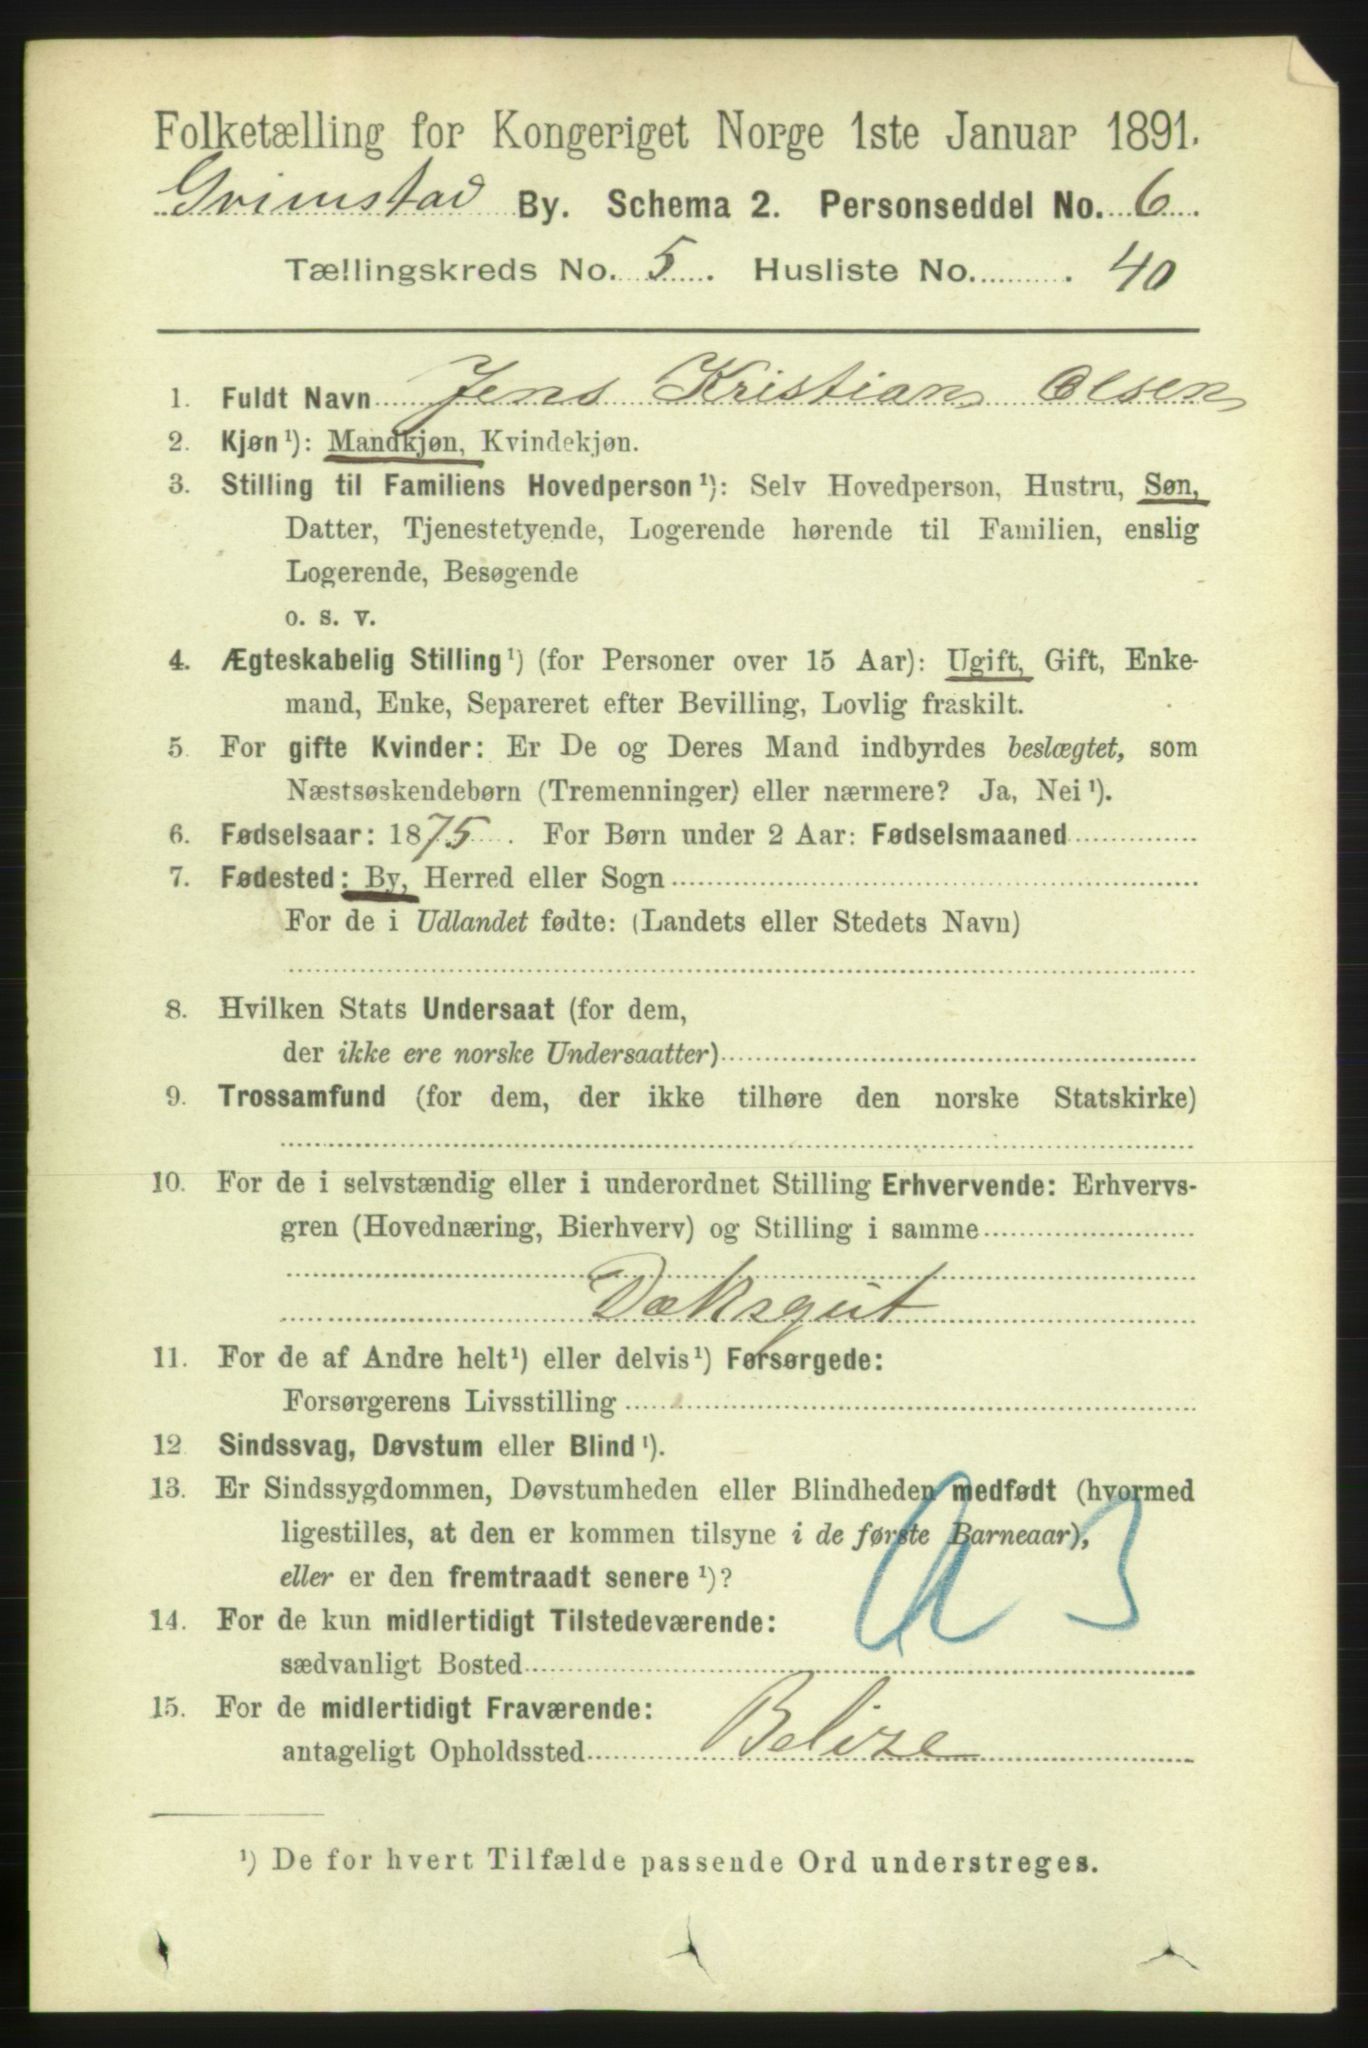 Folketælling for Kongeriget Norge 1ste Januar 1891.
Grimstad By. Schema 2. Personseddel No. 6.
Tællingskreds No. 5. Husliste No. 40
1. Fuldt Navn Jens Kristian Olsen
2. Kjøn¹): Mandkjøn, Kvindekjøn.
3. Stilling til Familiens Hovedperson¹): Selv Hovedperson, Hustru, Søn,
Datter, Tjenestetyende, Logerende hørende til Familien, enslig
Logerende, Besøgende
o. s. v.
4. Ægteskabelig Stilling¹) (for Personer over 15 Aar): Ugift, Gift, Enke-
mand, Enke, Separeret efter Bevilling, Lovlig fraskilt.
5 For gifte Kvinder: Er De og Deres Mand indbyrdes beslægtet, som
Næstsøskendebørn (Tremenninger) eller nærmere? Ja, Nei¹).
6. Fødselsaar: 1875. For Børn under 2 Aar: Fødselsmaaned
7. Fødested: By, Herred eller Sogn
For de i Udlandet fødte: (Landets eller Stedets Navn)
8. Hvilken Stats Undersaat (for dem,
der ikke ere norske Undersaatter)
9. Trossamfund (for dem, der ikke tilhøre den norske Statskirke)
10. For de i selvstændig eller i underordnet Stilling Erhvervende: Erhvervs-
gren (Hovednæring, Bierhverv) og Stilling i samme
Dæksgut
11. For de af Andre helt¹) eller delvis¹) Forsørgede:
Forsørgerens Livsstilling
12 Sindssvag, Døvstum eller Blind¹).
13. Er Sindssygdommen, Døvstumheden eller Blindheden medfødt (hvormed
ligestilles, at den er kommen tilsyne i de første Barneaar),
eller er den fremtraadt senere¹)?
14. For de kun midlertidigt Tilstedeværende:
sædvanligt Bosted
15. For de midlertidigt Fraværende:
antageligt Opholdssted Belize
¹) De for hvert Tilfælde passende Ord understreges.